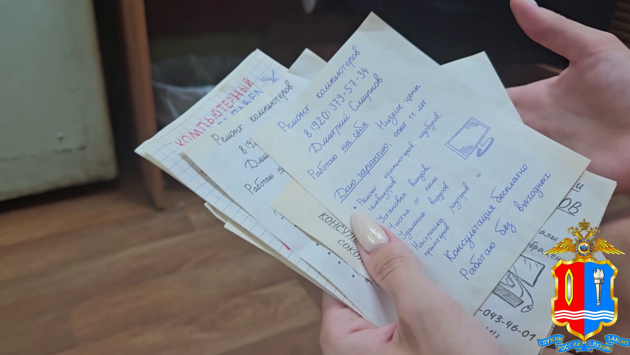 Ремонт компьютеров
8(920)-379-57-34
Дмитрий Смирнов
Работаю на себя
Низкие цены
Даю гарантию.
опыт 11 лет
• Ремонт компьютеров, ноутбуков,
телевизоров
Установка виндовс
Чистка от пыли
Удаление вирусов
Настройка роутеров и
принтеров
Консультация бесплатно
Работаю без выходных
КОМПЬЮТЕРНЫЙ
Ремонт компьютеров
8(92
Дми
Работаю
КОНСУЛ
СОКО
ОВ
-043-46-01
СЛУЖА
РОССИИ
СЛУЖИМ
ЗАКОНУ